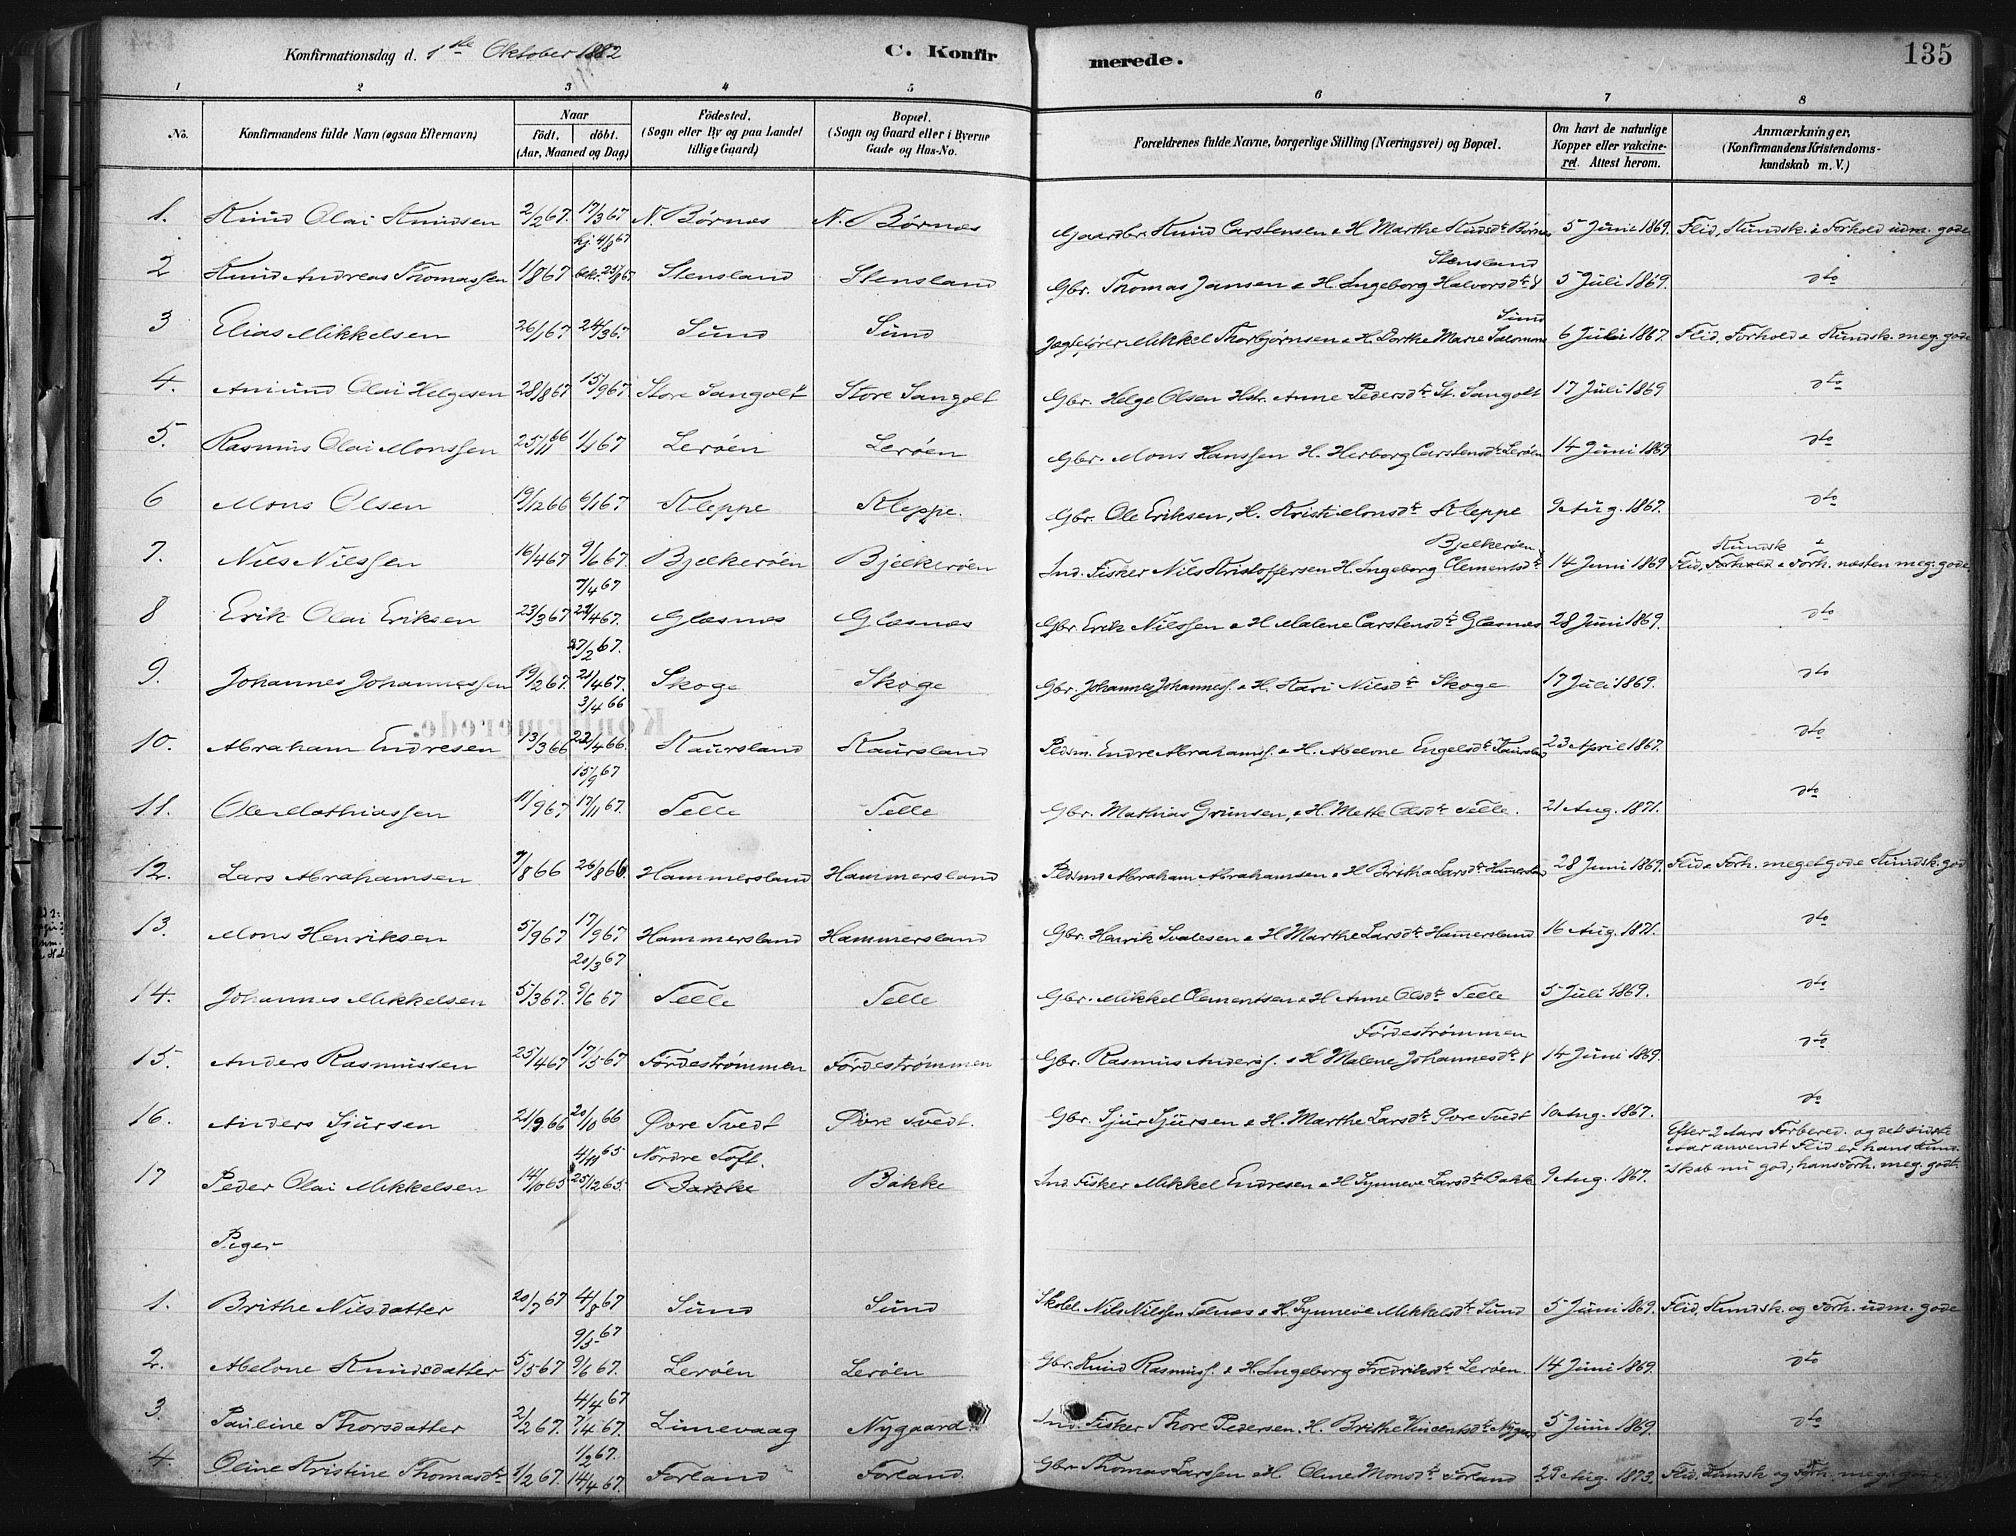 Konfirmationsdag d. 1ste Oktober 1882
C. Konfirmerede.
135
1 2 3 4 5 6 7 8
No.
Konfirmandens fulde Navn (ogsaa Efternavn)
Naar
födt. döbt.
(Aar, Maaned og Dag)
Födested.
(Sogn eller By og paa Landet
tillige Gaard)
Bopæl.
(Sogn og Gaard eller i Byerne
Gade og Hus-No.
Forældrenes fulde Navne, borgerlige Stilling (Næringsvei) og Bopæl.
Om havt de naturlige
Kopper eller vakcine-
ret. Attest herom.
Anmærkninger,
(Konfirmandens Kristendoms-
kundskab m. V.)
1. Knud Olai Knudsen 2/2 67. 17/3 67 N. Børnes N. Børnes Gaardbr. Knud Carstensen & H Marthe Knudsdtr Børnes 5 Juni 1869. Flid, Kundsk. & Forhold udm. gode
hj. 4/8 67
2 Knud Andreas Thomassen 1/8 67 bekr. 25/8 67 Stensland Stensland Gbr. Thomas Jansen & H. Ingeborg Halvorsdtr Stensland 5 Juli 1869. dto
3 Elias Mikkelsen 26/1 67 24/3 67. Sund Sund Jagtefører Mikkel Thorbjørnsen & H. Dorthe Marie Salomons Sund 6 Juli 1867. Flid, Forhold & Kundsk. meg. gode
4. Amund Olai Helgesen 28/8 67 15/9 67. Store Sangolt Store Sangolt Gbr. Helge Olsen Hstr. Anne Pedersdtr St. Sangolt 17 Juli 1869 dto
5. Rasmus Olai Monssen 25/11 66 1/1 67 Lerøen Lerøen Gbr. Mons Hanssen H. Herborg Carstensdtr Lerøen 14 Juni 1869 dto
6 Mons Olsen 19/12 66 6/1 67. Kleppe Kleppe. Gbr. Ole Eriksen, H. Kristi Monsdtr Kleppe 9 Aug. 1867. dto
7. Niels Nilssen 16/4 67 9/6 67. Bjelkerøen Bjelkerøen Ind. Fisker Nils Kristoffersen H. Ingeborg Clementsdtr Bjelkerøen 14 Juni 1869 Flid, Kundsk & Forh. næsten meg. gode
7/4 67
8 Erik Olai Eriksen 23/3 67 22/4 67. Glæsnes Glæsnes Gbr. Erik Nilssen & H Malene Carstensdtr Glæsnes 28 Juni 1869. dto
27/2 67.
9. Johannes Johannessen 19/2 67. 21/4 67. Skoge Skoge Gbr. Johannes Johanness. & H. Kari Nilsdtr Skoge 17 Juli 1869. dto
3/4 66
10. Abraham Endresen 13/3 66 22/4 66. Kaursland Kaursland Pldsm. Endre Abrahams. & H. Abelone Engelsdtr Kaursland 23 April 1867. dto
15/9 67
11. Ole Mathiassen 11/9 67 17/11 67. Telle Telle Gbr. Mathias Grimsen, & H. Mette Olsdtr Telle. 21 Aug. 1871. dto
12. Lars Abrahamsen 7/8 66 26/8 66. Hammersland Hammersland Pldsmd Abraham Abrahamsen & H Britha Larsdtr Hammersland 28 Juni 1869. Flid & Forh. meget gode Kundsk. god
13. Mons Henriksen 5/9 67 17/9 67 Hammersland Hammersland Gbr. Henrik Svalesen & H Marthe Larsdtr Hammersland 16 Aug. 1871. dto
20/3 67
14. Johannes Mikkelsen 5/3 67. 9/6 67 Telle Telle Gbr. Mikkel Clementsen & H Anne Olsdtr Telle 5 Juli 1869. dto
15. Anders Rasmussen 25/4 67 17/5 67 Førdestrømmen Førdestrømmen Gbr. Rasmus Anders. & H Malene Johannesdtr Førdestrømmen 14 Juni 1869. dto
16. Anders Sjursen 21/9 66 20/10 66 Øvre Tvedt Øvre Tvedt. Gbr. Sjur Sjursen & H. Marthe Larsdtr Øvre Tvedt 10 Aug. 1867. dto
4/11 65 Nordre Toft.
17 Peder Olai Mikkelsen 14/10 65 25/12 65. Bakke Bakke Ind. Fisker Mikkel Endresen & H Synneve Larsdtr Bakke 9 Aug. 1867. Efter 2 Aars Forbered. og det sidste
svar anvendt Flid er hans Kund-
skab nu god; hans Forh. meg. godt.
Piger
1. Brithe Nilsdatter 20/7 67 4/8 67 Sund Sund Skolel. Nils Nilssen Tofnes & H. Synneve Mikkelsdtr Sund 5 Juni 1869. Flid, Kundsk. og Forh. udm. gode
9/5 67
2. Abelone Knudsdatter 5/5 67 9/6 67. Lerøen Lerøen Gbr. Knud Rasmuss. & H. Ingeborg Fredriksdtr Lerøen. 14 Juni 1869. dto
4/4 67
3. Pauline Thorsdatter 2/2 67. 7/4 67. Limevaag Nygaard. Ind. Fisker Thore Pedersen. H. Brithe Vincentsdtr Nygaard 5 Juni 1869. dto
1/2 67.
4 Oline Kristine Thomasdtr 1/2 67. 14/4 67. Forland Forland. Gbr Thomas Larssen & H Oline Monsdtr Forland 29 Aug. 1873. Flid, Kundsk. og Forh. meg. gode